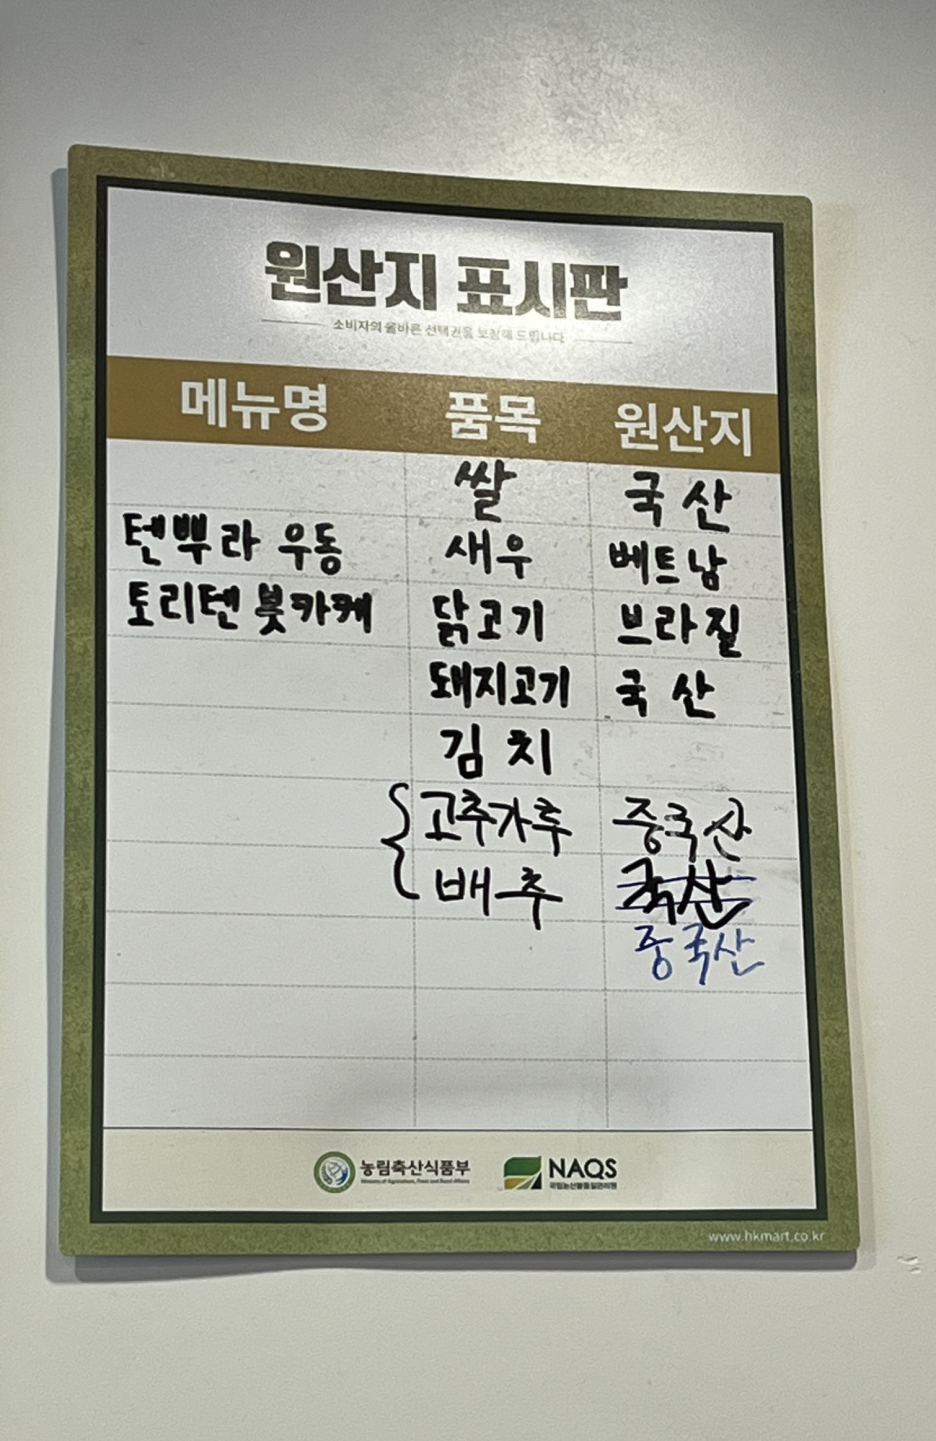 원산지 표시판
소비자의 올바른 선택권을 보장해 드립니다
메뉴명 품목 원산지
쌀 국산
텐뿌라 우동 새우 베트남
토리텐 붓카케 닭고기 브라질
돼지고기 국산
김치
고추가루 중국산
배추 국산
중국산
농림축산식품부 NAQS
Ministry of Agriculture, Food and Rural Affairs 국립농산물품질관리원
www.hkmart.co.kr